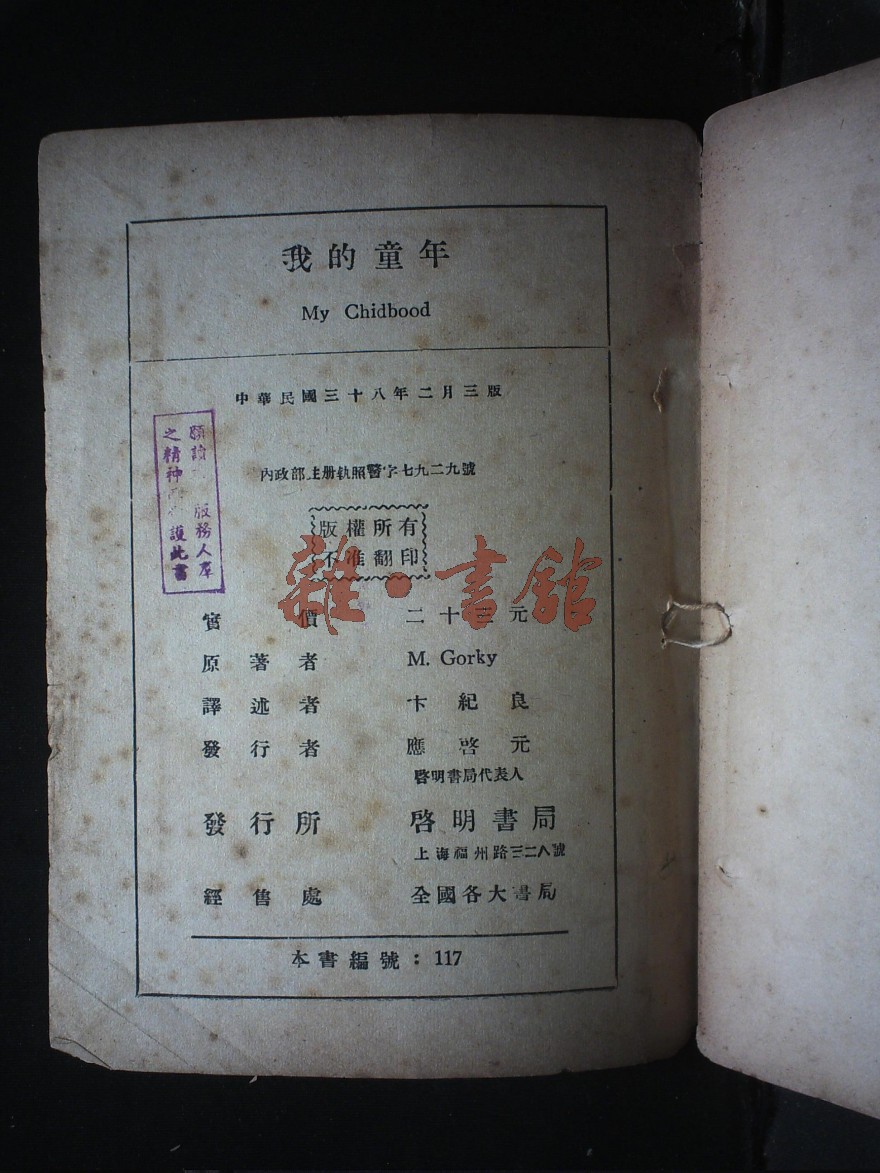 我的童年
My Chidbood
中華民國三十八年二月三版
內政部註册執照警字七九二九號
版權所有
不准翻印
實價 二十三元
原著者 M. Gorky
譯述者 卞紀良
發行者 應啓元
啓明書局代表人
發行所 啓明書局
上海福州路三二八號
經售處 全國各大書局
本書編號：117
願讀 版務人羣
之精神 護此書
雜·書館